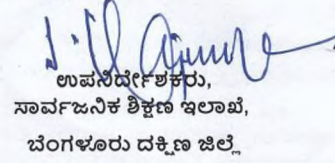 ಉಪನಿರ್ದೇಶಕರು,
ಸಾರ್ವಜನಿಕ ಶಿಕ್ಷಣ ಇಲಾಖೆ,
ಬೆಂಗಳೂರು ದಕ್ಷಿಣ ಜಿಲ್ಲೆ